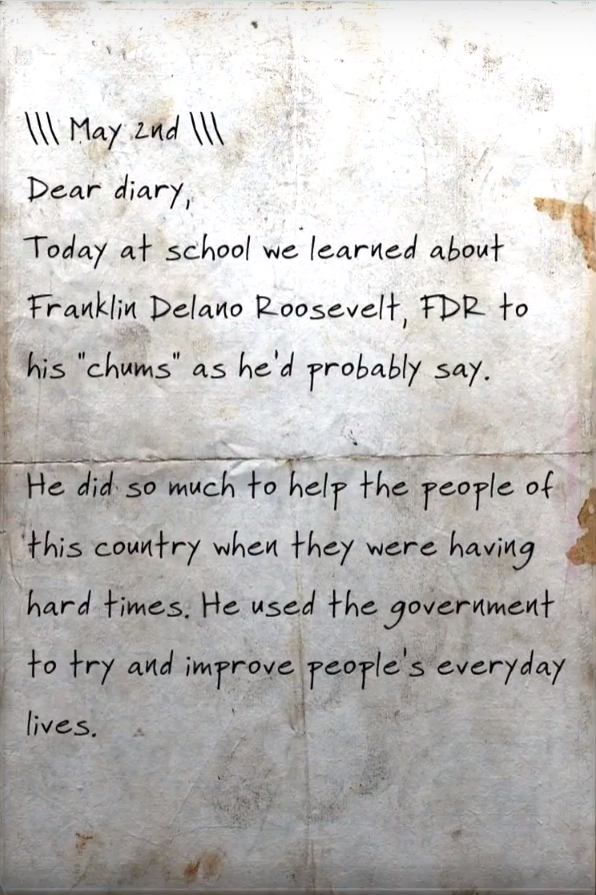 \\\ May 2nd \\\
Dear diary,
Today at school we learned about
Franklin Delano Roosevelt, FDR to
his "chums" as he'd probably say.
He did so much to help the people of
this country when they were having
hard times. He used the government
to try and improve people's everyday
lives.